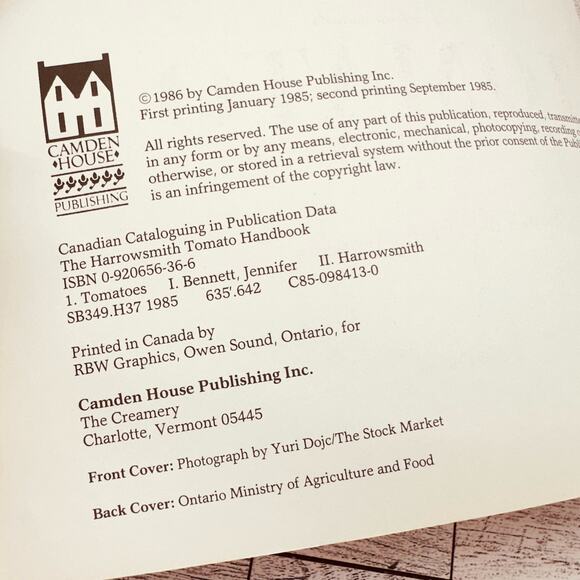 CAMDEN
HOUSE
PUBLISHING
©1986 by Camden House Publishing Inc.
First printing January 1985; second printing September 1985.
All rights reserved. The use of any part of this publication, reproduced, transmitte
in any form or by any means, electronic, mechanical, photocopying, recording o
otherwise, or stored in a retrieval system without the prior consent of the Publ
is an infringement of the copyright law.
Canadian Cataloguing in Publication Data
The Harrowsmith Tomato Handbook
ISBN 0-920656-36-6
1. Tomatoes I. Bennett, Jennifer II. Harrowsmith
SB349.H37 1985 635'.642 C85-098413-0
Printed in Canada by
RBW Graphics, Owen Sound, Ontario, for
Camden House Publishing Inc.
The Creamery
Charlotte, Vermont 05445
Front Cover: Photograph by Yuri Dojc/The Stock Market
Back Cover: Ontario Ministry of Agriculture and Food